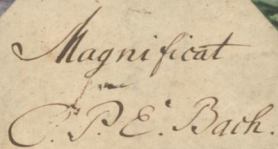 Magnificat
C. P. E. Bach.